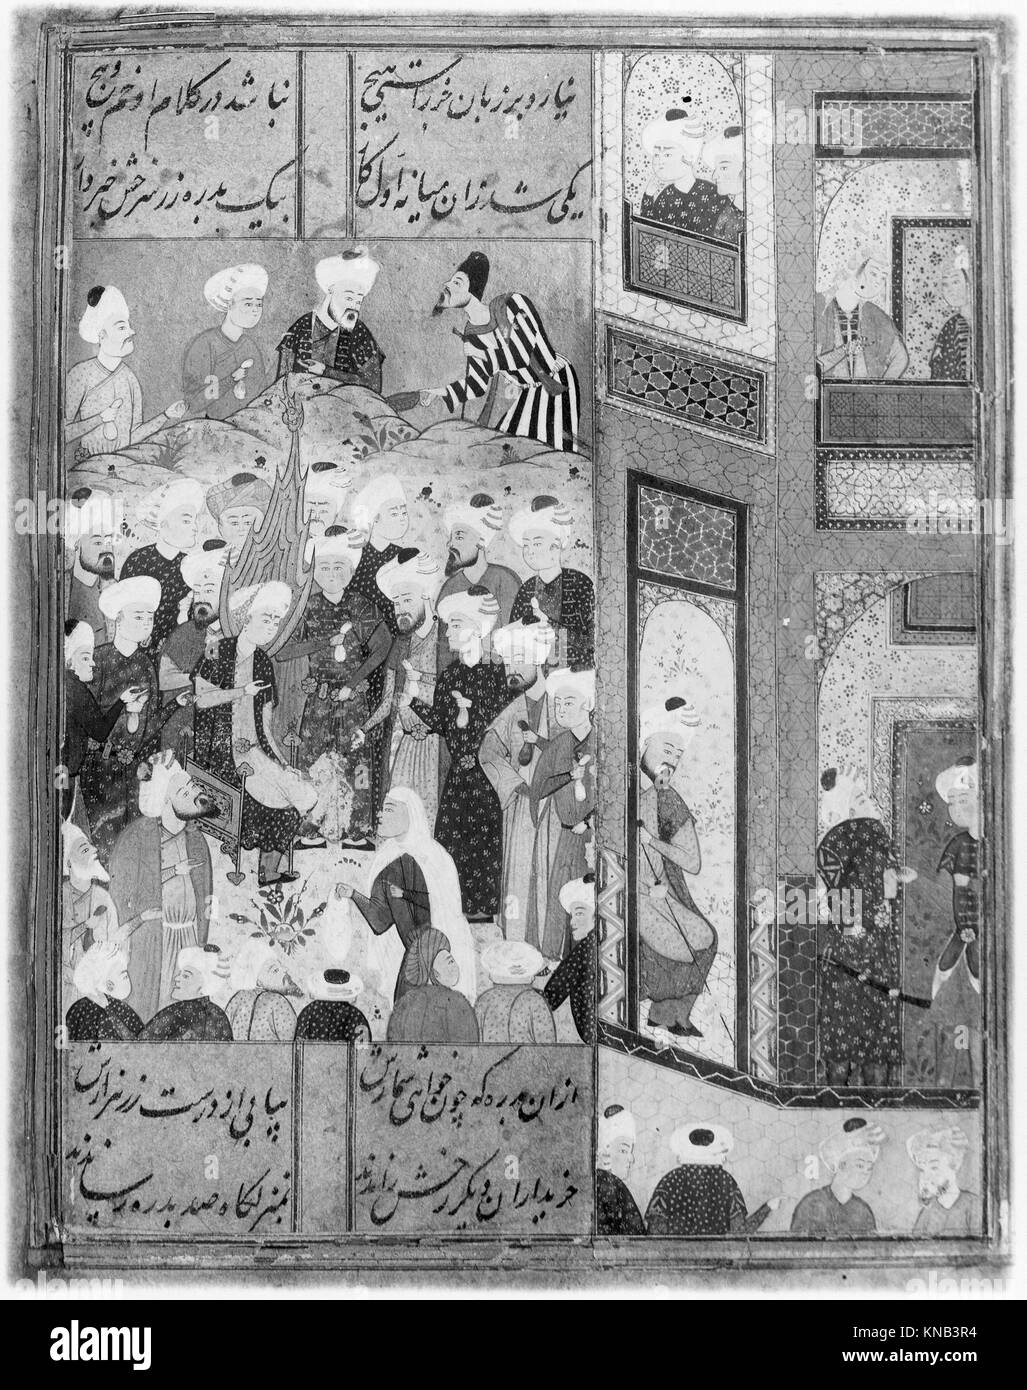 نیارد بر زبان جز راستی هیچ نباشد در کلام او خم و پیچ
یکی شد زان میانه اول کار بیک بدره ز زر سرخش خریدار
ازان بدره که چون خواهی شمارش بیابی از درست زر هزارش
خریداران دیگر رخش راندند بمنزلگاه صد بدره رساندند
alamy
Image ID: KNB3R4
www.alamy.com